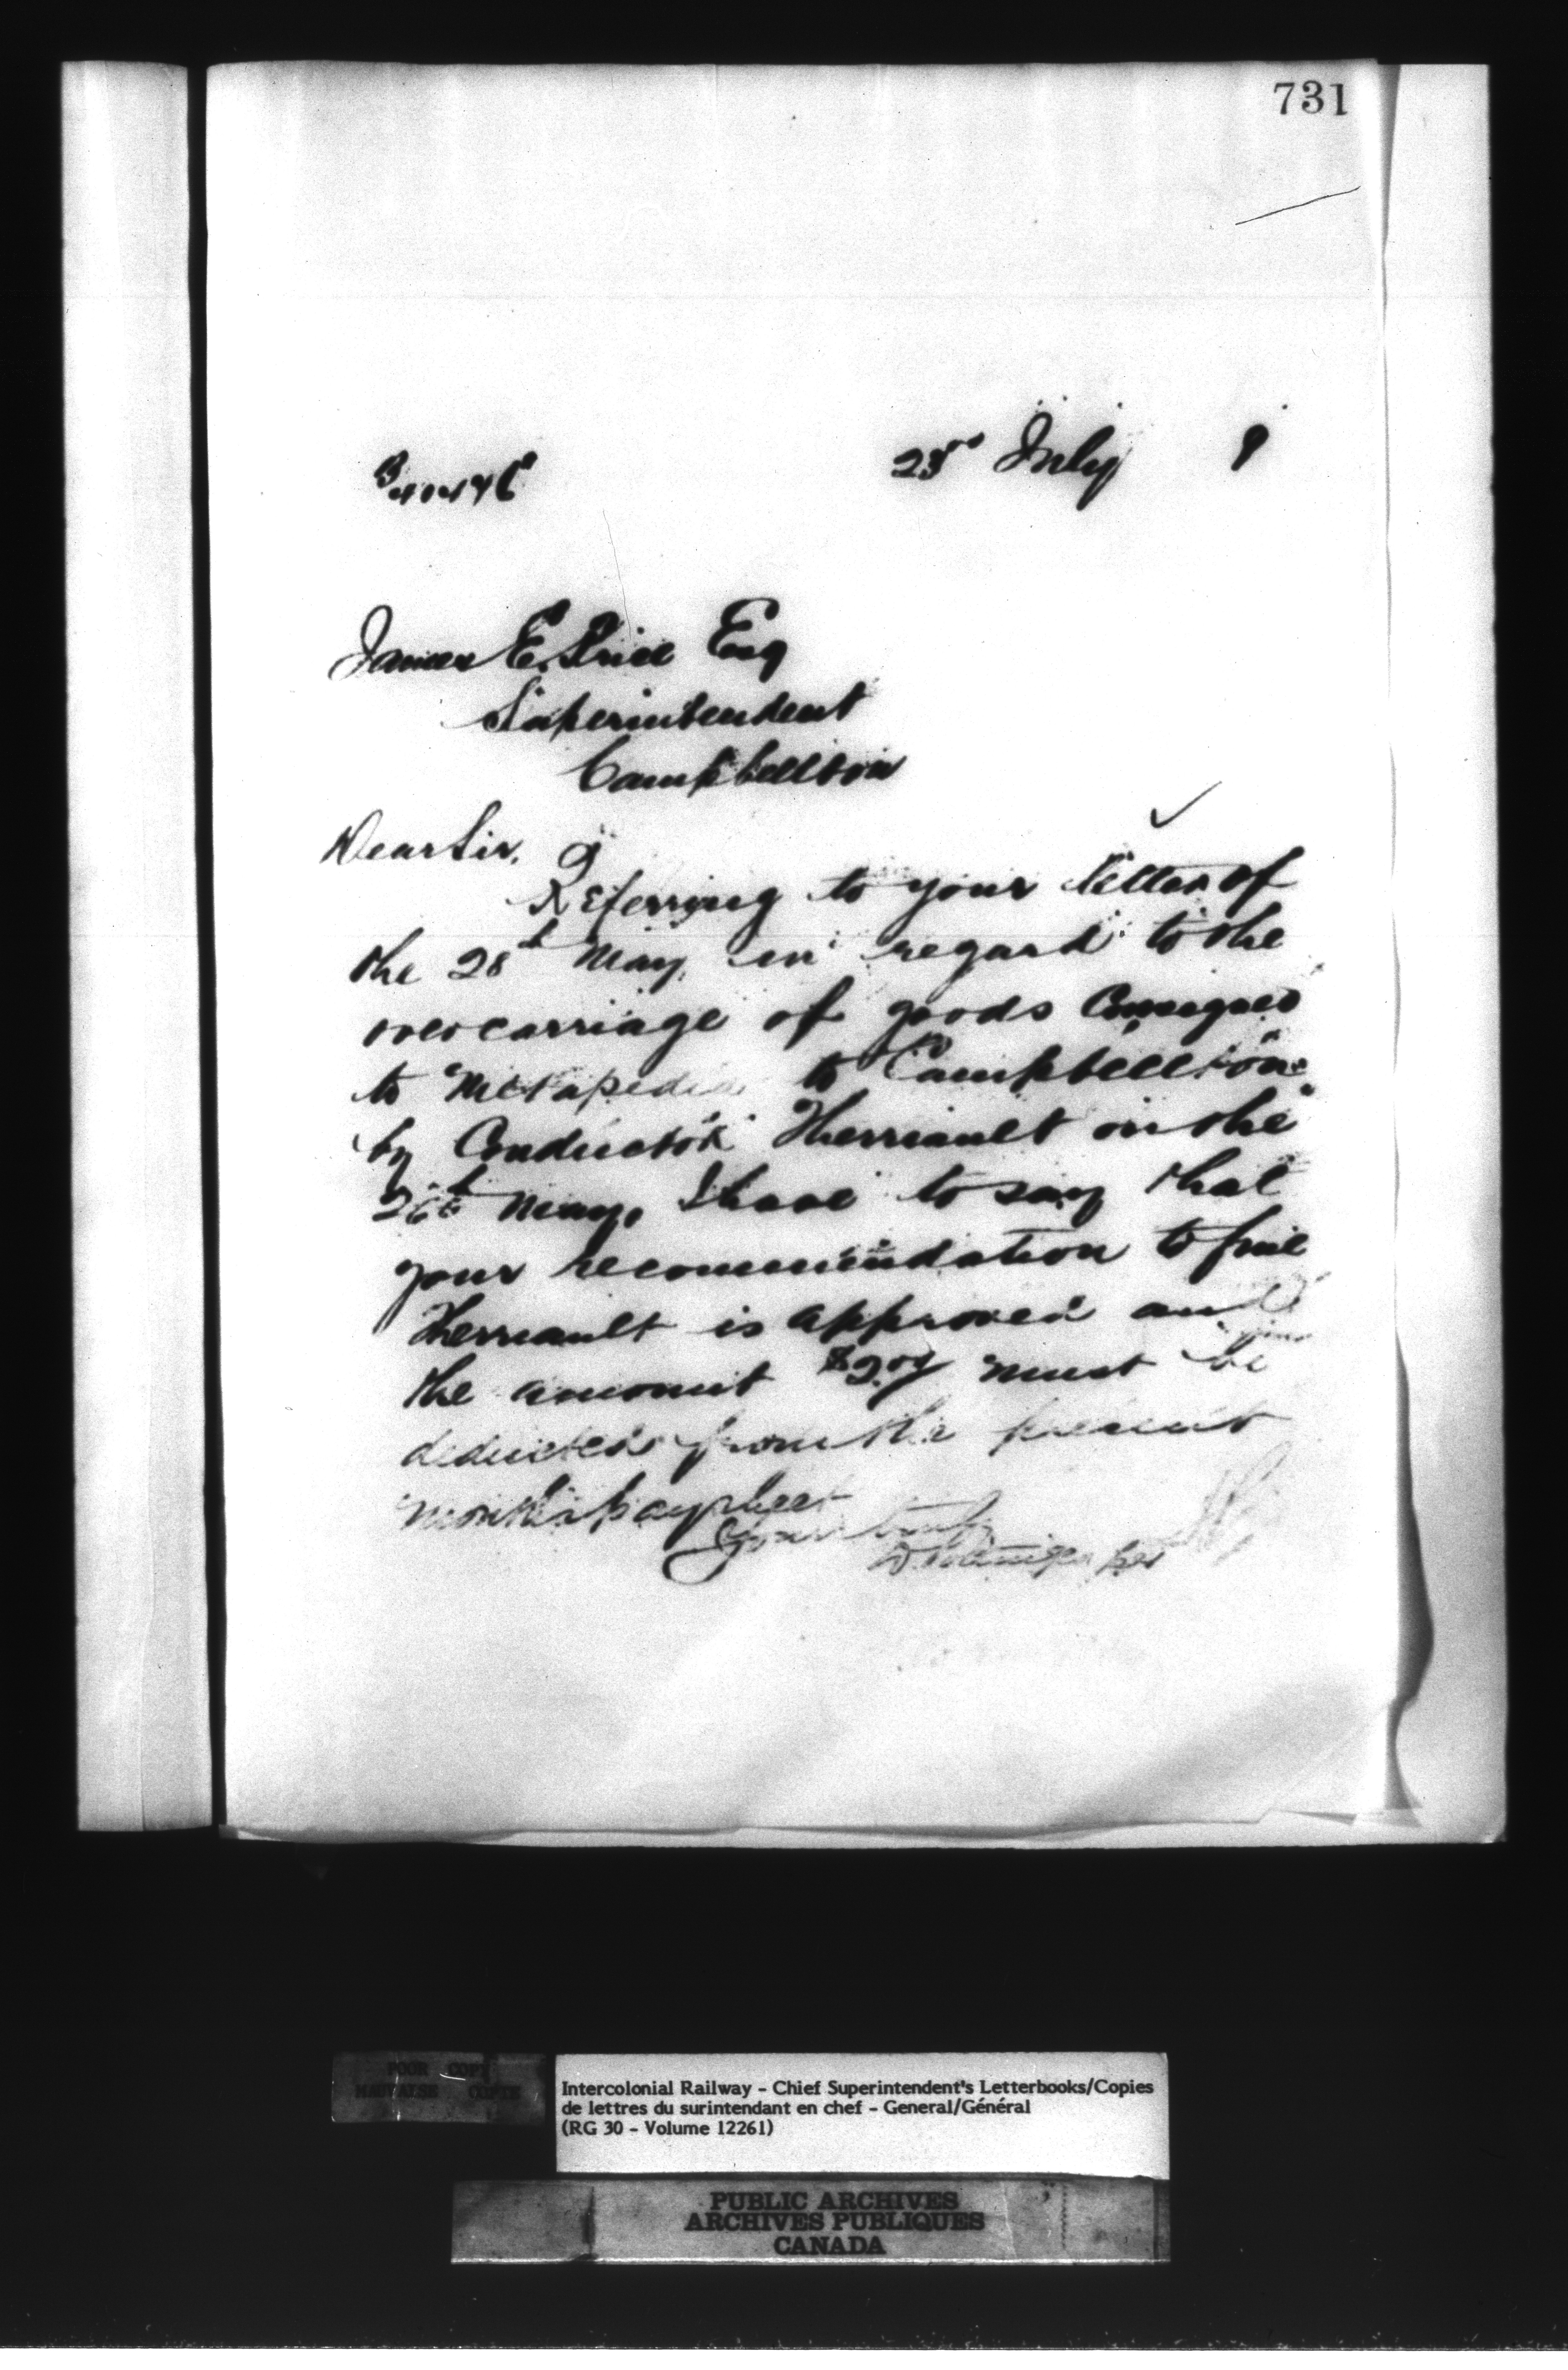 731
23rd July 9
James E. Price Esq
Superintendent
Campbellton
Dear Sir,
Referring to your letter of
the 28th May, in regard to the
overcarriage of goods Consigned
to Metapedia to Campbellton
by Conductor Therriault on the
26th May, I have to say that
your recommendation to fine
Therriault is approved and
the amount must be
deducted from the present
month's paysheet
Yours truly
D Pottinger per
POOR COPY
MAUVAISE COPIE
Intercolonial Railway - Chief Superintendent's Letterbooks/Copies
de lettres du surintendant en chef - General/Général
(RG 30 - Volume 12261)
PUBLIC ARCHIVES
ARCHIVES PUBLIQUES
CANADA